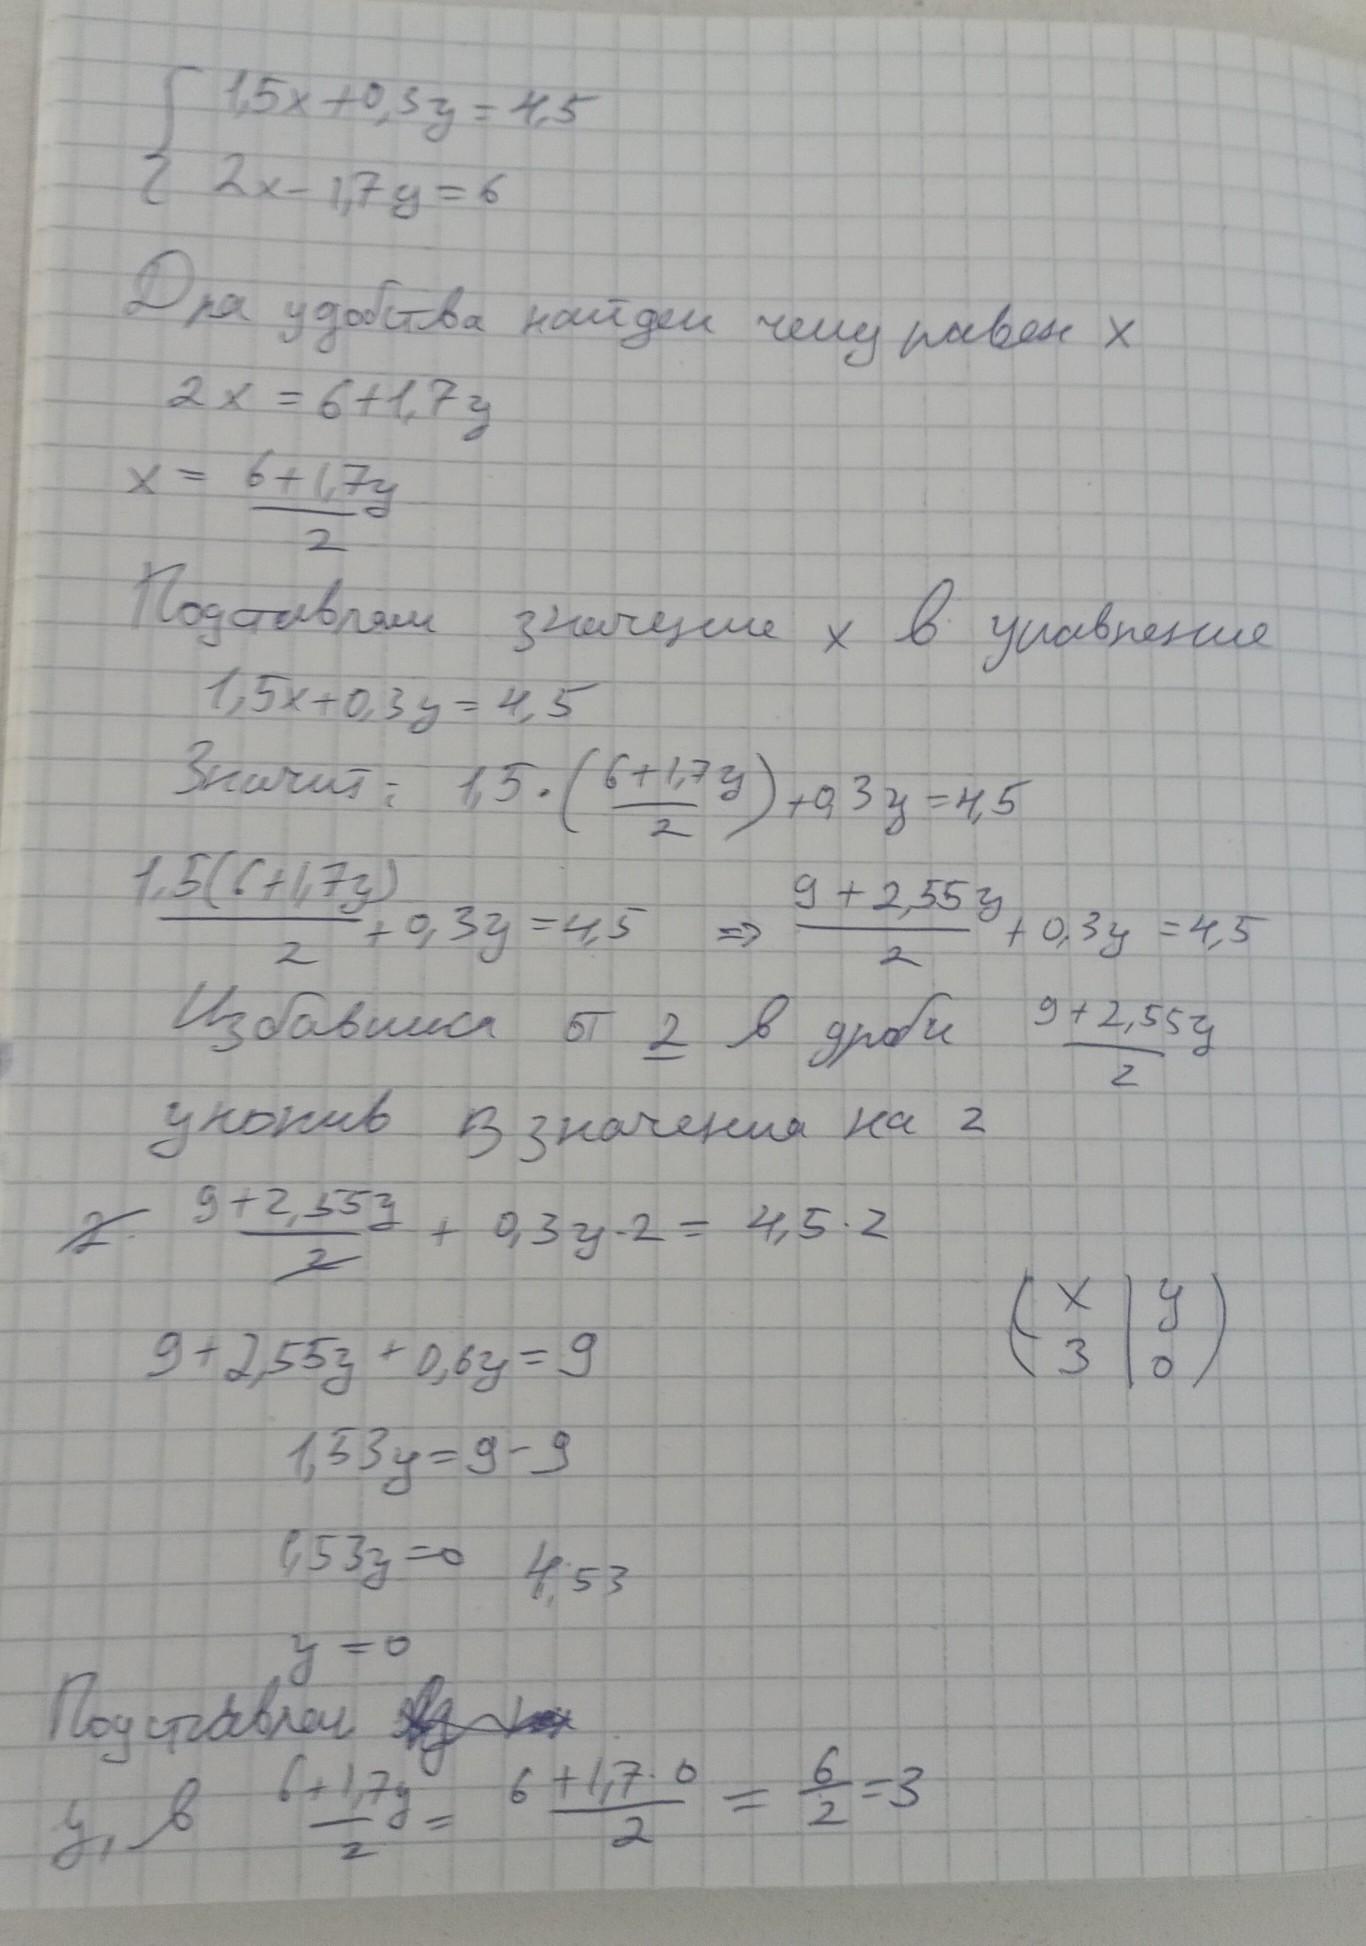 { 1,5x+0,3y=4,5
2x-1,7y=6
Для удобства найдем чему равен x
2x=6+1,7y
x= (6+1,7y)/2
Подставлям значение x в уравнение
1,5x+0,3y=4,5
Значит: 1,5·((6+1,7y)/2)+0,3y=4,5
1,5(6+1,7y)/2+0,3y=4,5 => (9+2,55y)/2+0,3y=4,5
Избавимся от 2 в дроби (9+2,55y)/2
умножив 3 значения на 2
2·(9+2,55y)/2+0,3y·2=4,5·2
(x|y
3|0)
9+2,55y+0,6y=9
1,53y=9-9
1,53y=0 4,53
y=0
Подставлям
y, в (6+1,7y)/2=(6+1,7·0)/2=6/2=3